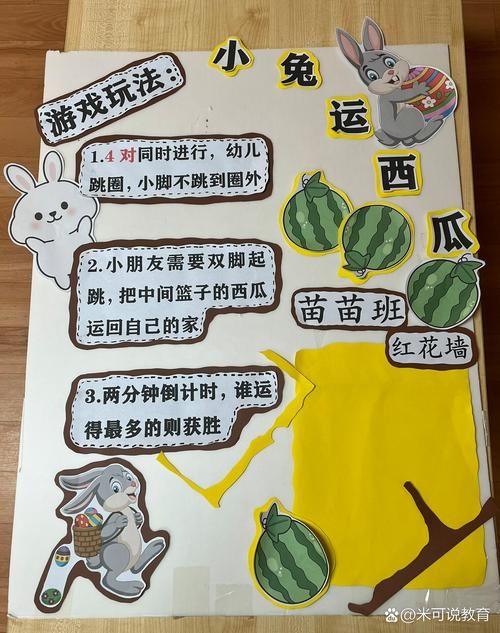 小兔运西瓜
游戏玩法:
1.4 对同时进行，幼儿
跳圈，小脚不跳到圈外
2.小朋友需要双脚起
跳，把中间篮子的西瓜
运回自己的家
3.两分钟倒计时，谁运
得最多的则获胜
苗苗班
红花墙
米可说教育